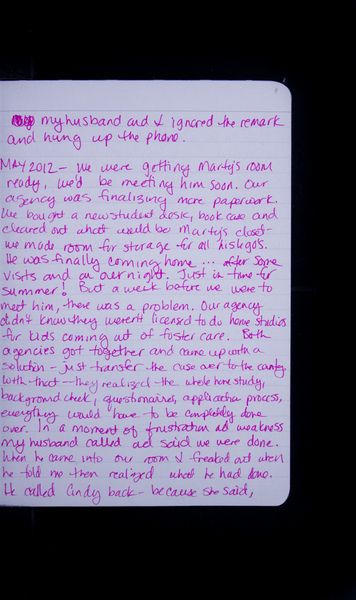 my husband and I ignored the remark
and hung up the phone.
MAY 2012 - We were getting Marty's room
ready, we'd be meeting him soon. Our
agency was finalizing more paperwork.
We bought a new student desk, book case and
cleared out what would be Marty's closet -
we made room for storage for all his legos.
He was finally coming home ... after some
visits and an overnight. Just in time for
summer! But a week before we were to
meet him, there was a problem. Our agency
didn't know they weren't licensed to do home studies
for kids coming out of foster care. Both
agencies got together and came up with a
solution - just transfer the case over to the county.
With that - they realized the whole home study,
background check, questionnaires, application process,
everything would have to be completely done
over. In a moment of frustration and weakness
my husband called and said we were done.
When he came into our room I freaked out when
he told me then realized what he had done.
He called Cindy back - because she said,